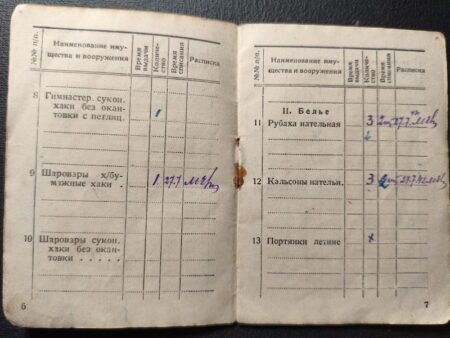 №№ п/п.
Наименование иму-
щества и вооружения
Время выдачи
Количе-
ство
Время списания
Расписка
8 Гимнастер. сукон.
хаки без окан-
товки с петлиц. 1
9 Шаровары х/бу-
мажные хаки . 1 27.7
10 Шаровары сукон.
хаки без окан-
товки . . . . .
6
№№ п/п.
Наименование иму-
щества и вооружения
Время выдачи
Количе-
ство
Время списания
Расписка
II. Белье
11 Рубаха нательная 3
12 Кальсоны нательн. 3
13 Портянки летние
7